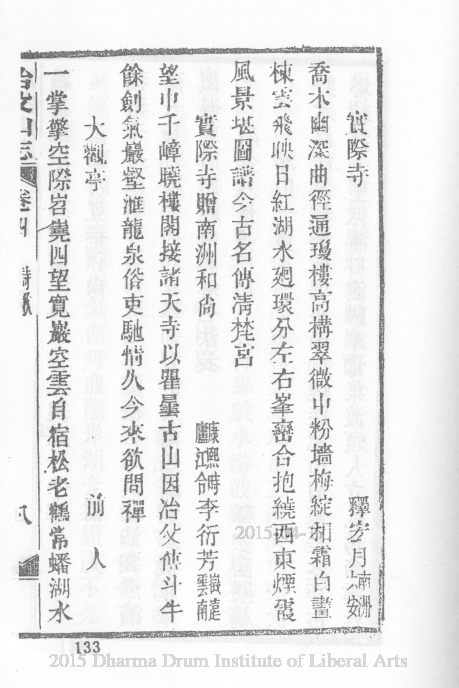 實際寺 釋宏月 南洲 六安
喬木幽深曲徑通瓊樓高構翠微中粉墻梅綻相霜白畫
棟雲飛映日紅湖水廻環分左右峯巒合抱繞西東煙霞
風景堪圖譜今古名傳清梵宮
實際寺贈南洲和尚 康熙時廬江令 李衍芳 嶽遠 雲南
望中千嶂曉樓閣接諸天寺以瞿曇古山因冶父傳斗牛
餘劍氣巖壑滙龍泉俗吏馳情久今來欲問禪
大觀亭 前人
一掌擎空際岧嶤四望寬巖空雲自宿松老鶴常蟠湖水
冶父山志 卷四 詩 八
133
2015 Dharma Drum Institute of Liberal Arts